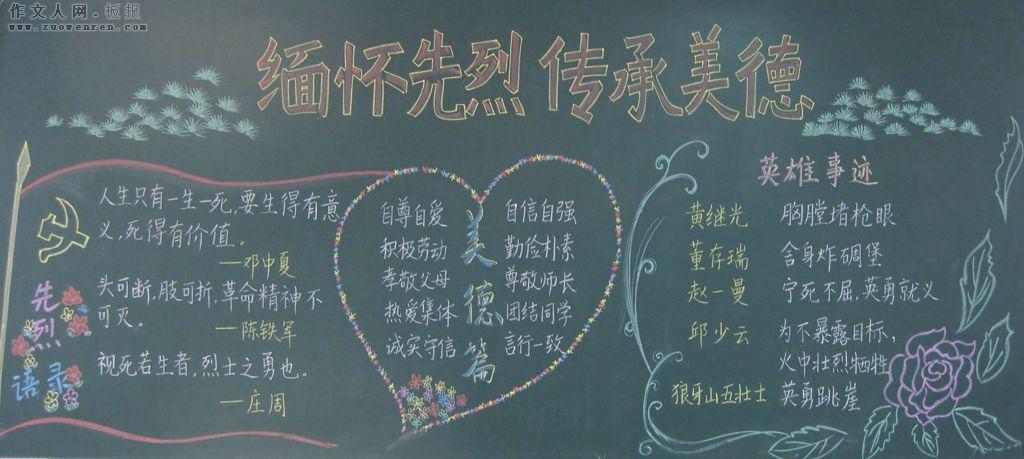 作文人网.板报
www.zuowenren.net
缅怀先烈 传承美德
先烈语录
人生只有一生一死，要生得有意
义，死得有价值。
—邓中夏
头可断，肢可折，革命精神不
可灭。
—陈铁军
视死若生者，烈士之勇也。
—庄周
美德篇
自尊自爱 自信自强
积极劳动 勤俭朴素
孝敬父母 尊敬师长
热爱集体 团结同学
诚实守信 言行一致
英雄事迹
黄继光 胸膛堵枪眼
董存瑞 舍身炸碉堡
赵一曼 宁死不屈，英勇就义
邱少云 为不暴露目标，
火中壮烈牺牲
狼牙山五壮士 英勇跳崖